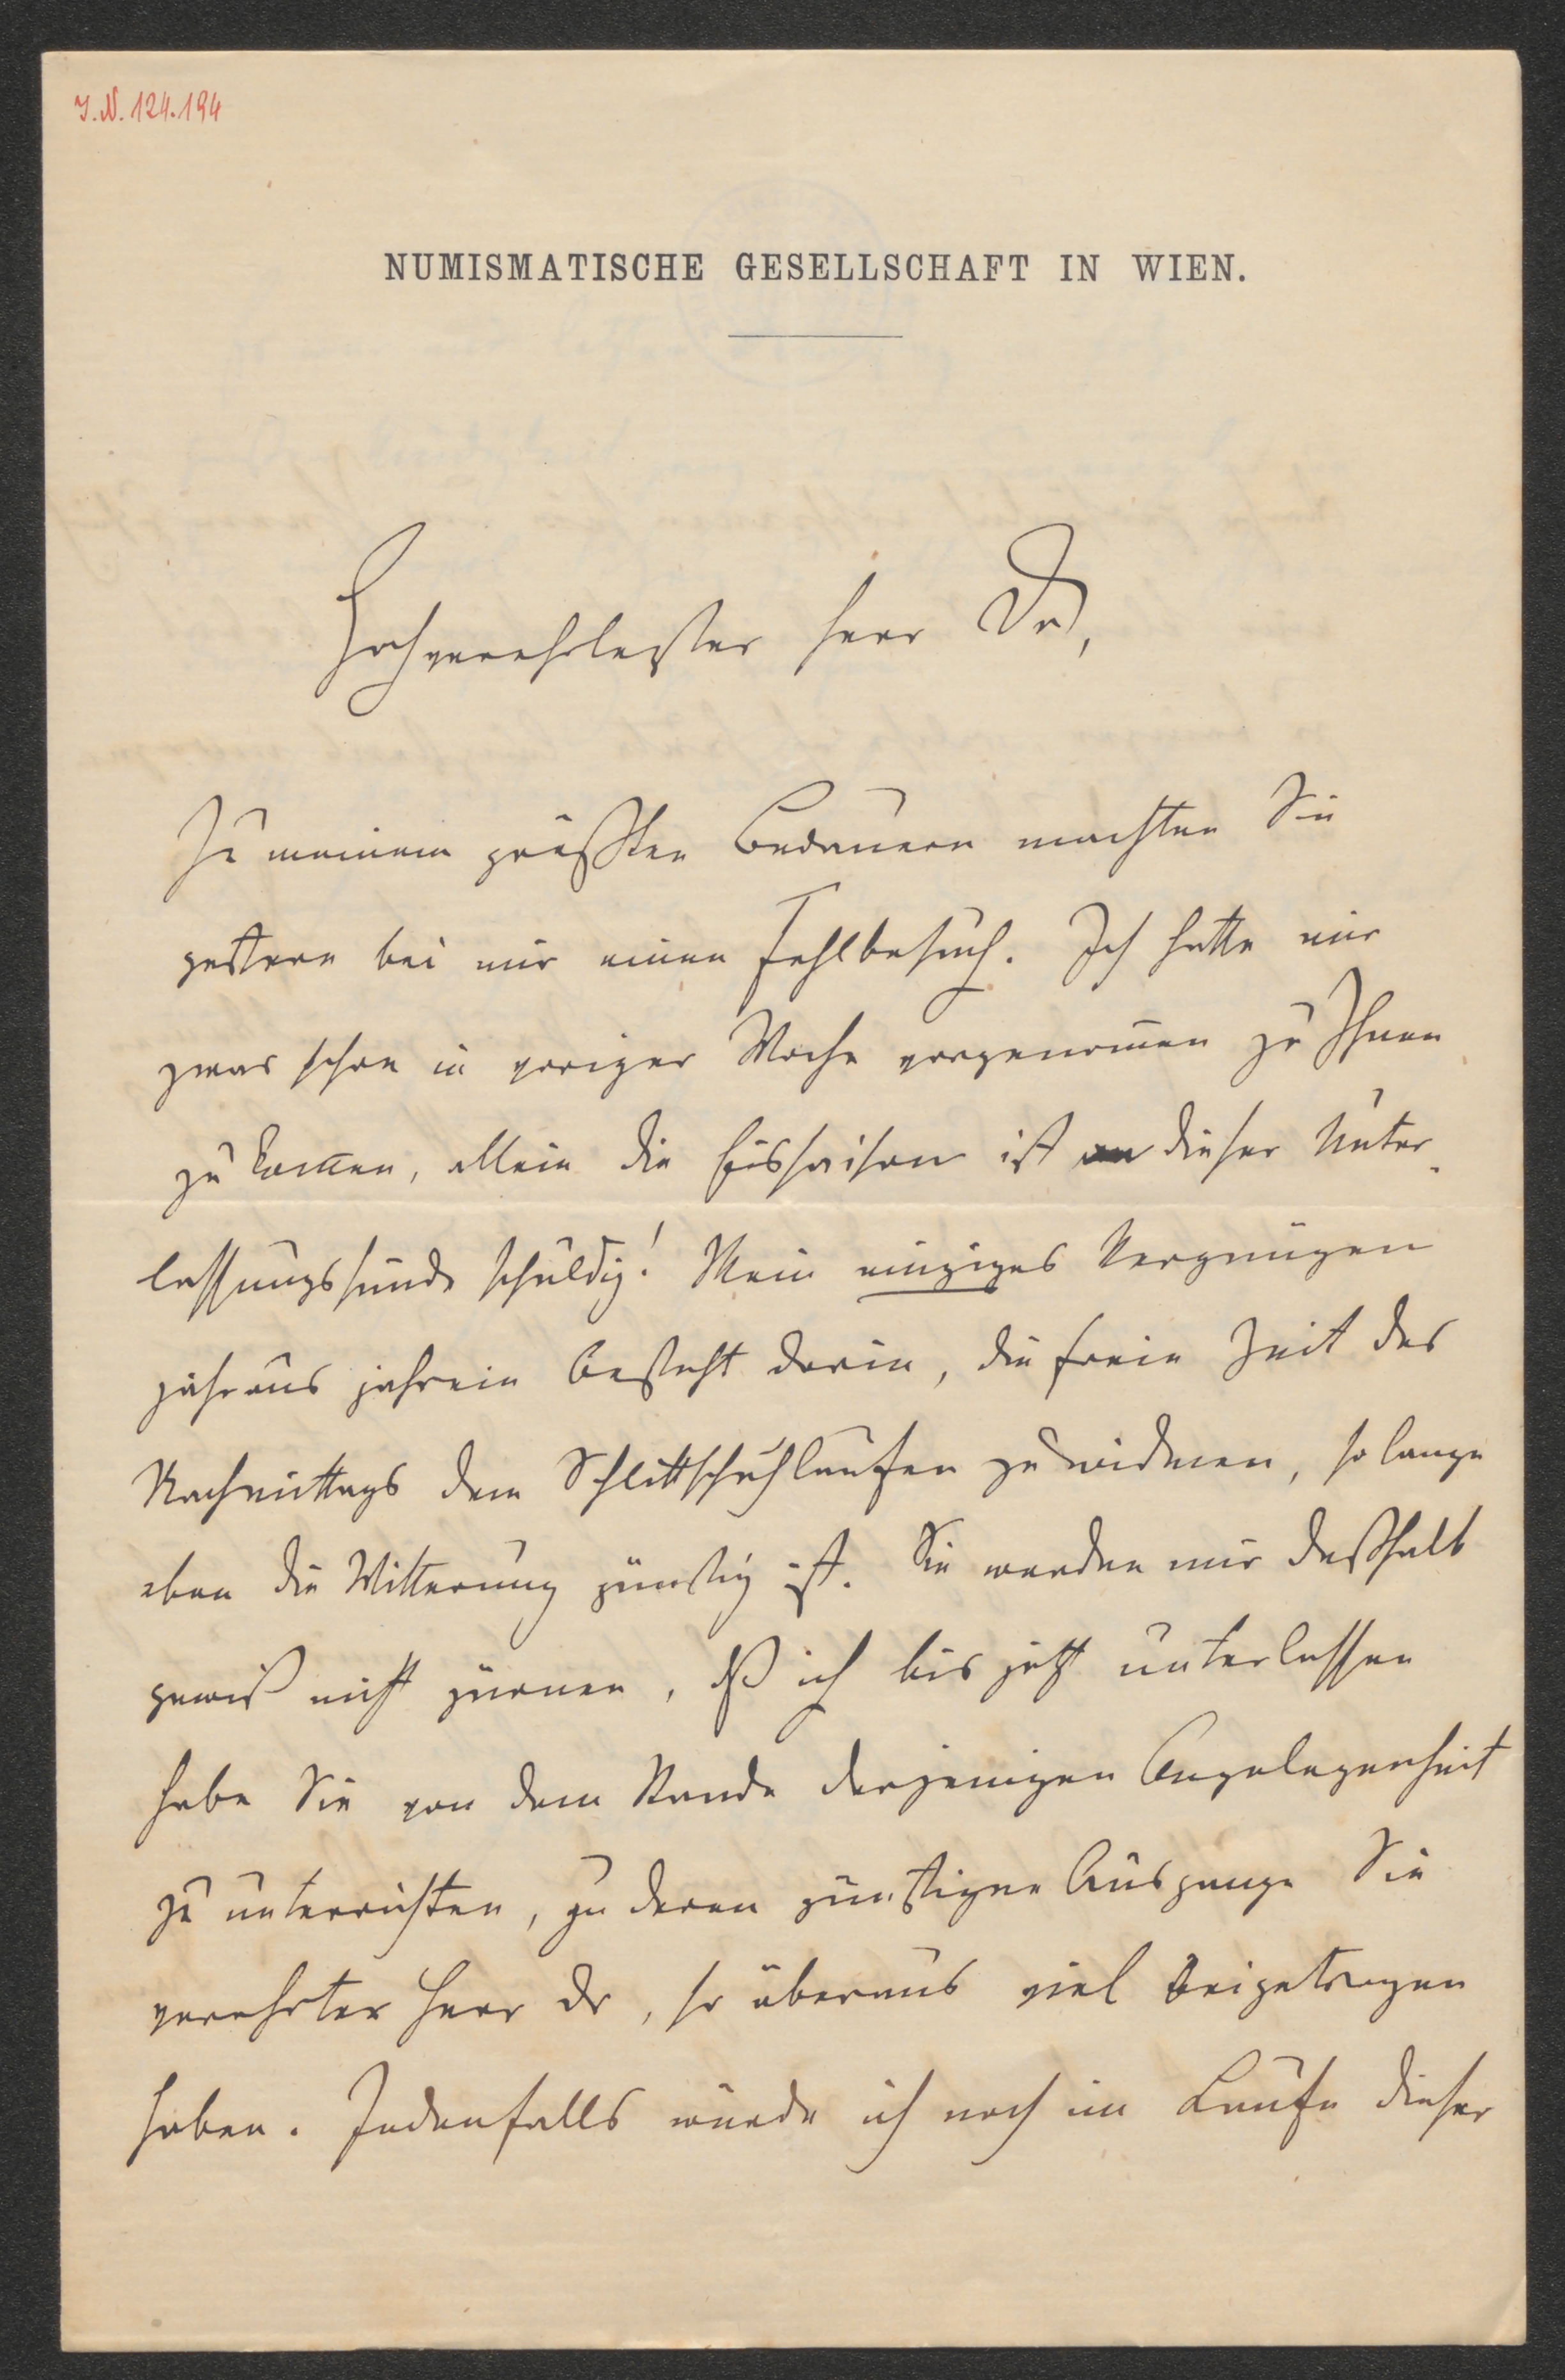 J.N. 124.194
NUMISMATISCHE GESELLSCHAFT IN WIEN.
Hochverehrtester Herr Dr,
Zu meinem größten Bedauern machten Sie
gestern bei mir einen Fehlbesuch. Ich hatte mir
zwar schon in voriger Woche vorgenom̄en zu Ihnen
zu kom̄en, allein die Eissaison ist an dieser Unter-
lassungssünde schuldig! Mein einziges Vergnügen
jahraus jahrein besteht darin, die freie Zeit des
Nachmittags dem Schlittschuhlaufen zu widmen, so lange
eben die Witterung günstig ist. Sie werden mir deßhalb
gewiß nicht zürnen, dß ich bis jetzt unterlassen
habe Sie von dem Stande derjenigen Angelegenheit
zu unterrichten, zu deren günstigen Ausgange Sie
verehrter Herr Dr, so überaus viel beigetragen
haben. Jedenfalls würde ich noch im Laufe dieser